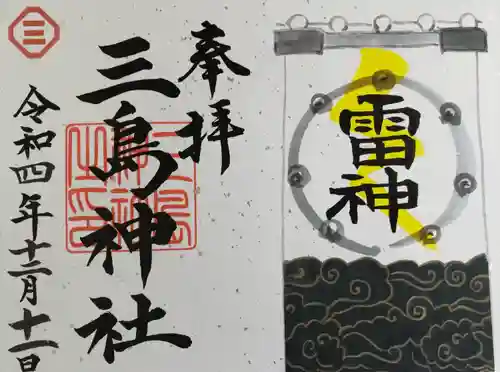 奉拝
三島神社
令和四年十二月十一日
雷神
三